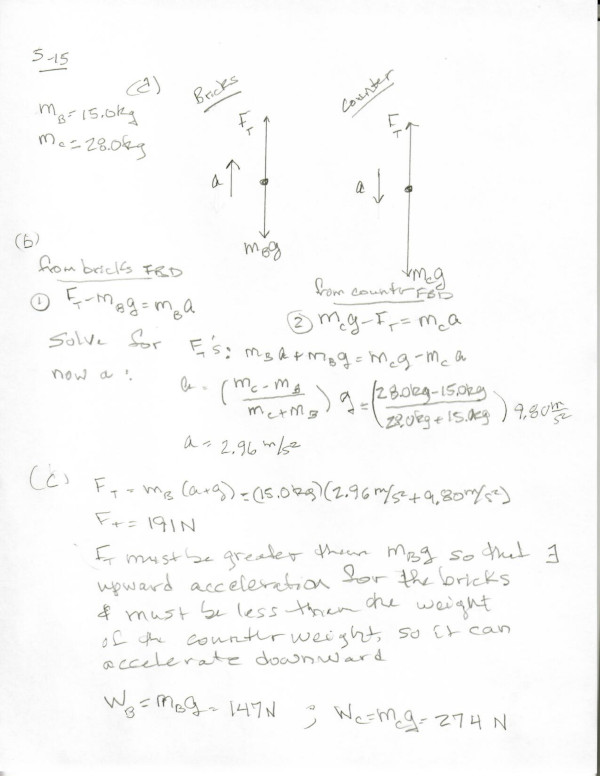 5-15
(a)
m_B = 15.0kg
m_c = 28.0kg
Bricks
F_T
a
m_Bg
Counter
F_T
a
m_cg
(b)
from bricks FBD
① F_T - m_Bg = m_Ba
from counter FBD
② m_cg - F_T = m_ca
Solve for F_T's: m_Ba + m_Bg = m_cg - m_ca
now a: a = (m_c - m_B / m_c + m_B) g = (28.0kg - 15.0kg / 28.0kg + 15.0kg) 9.80 m/s²
a = 2.96 m/s²
(c) F_T = m_B (a+g) = (15.0kg)(2.96 m/s² + 9.80 m/s²)
F_T = 191N
F_T must be greater than m_Bg so that ∃
upward acceleration for the bricks
& must be less than the weight
of the counterweight, so it can
accelerate downward
W_B = m_Bg = 147N ; W_c = m_cg = 274 N